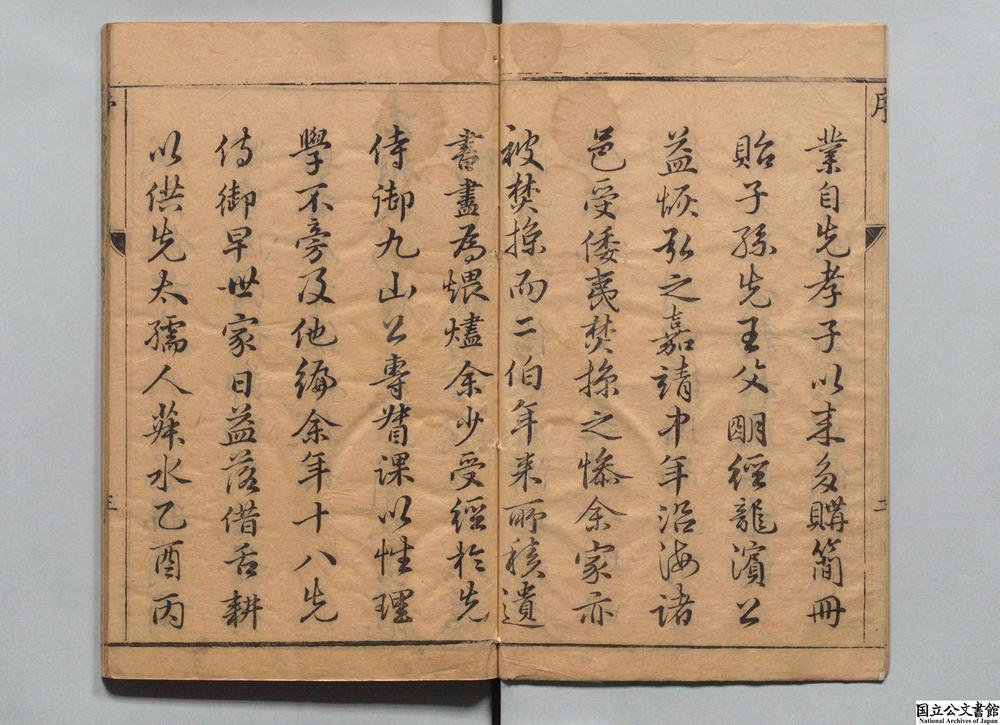 序
二
業自先孝子以来多購簡冊
貽子孫先王父明經龍濱公
益恢弘之嘉靖中年沿海諸
邑受倭夷焚掠之慘余家亦
被焚掠而二伯年来所積遺
書盡為煨燼余少受經於先
侍御九山公專督課以性理
學不旁及他編余年十八先
侍御早世家日益落借舌耕
以供先太孺人菽水乙酉丙
三
国立公文書館
National Archives of Japan